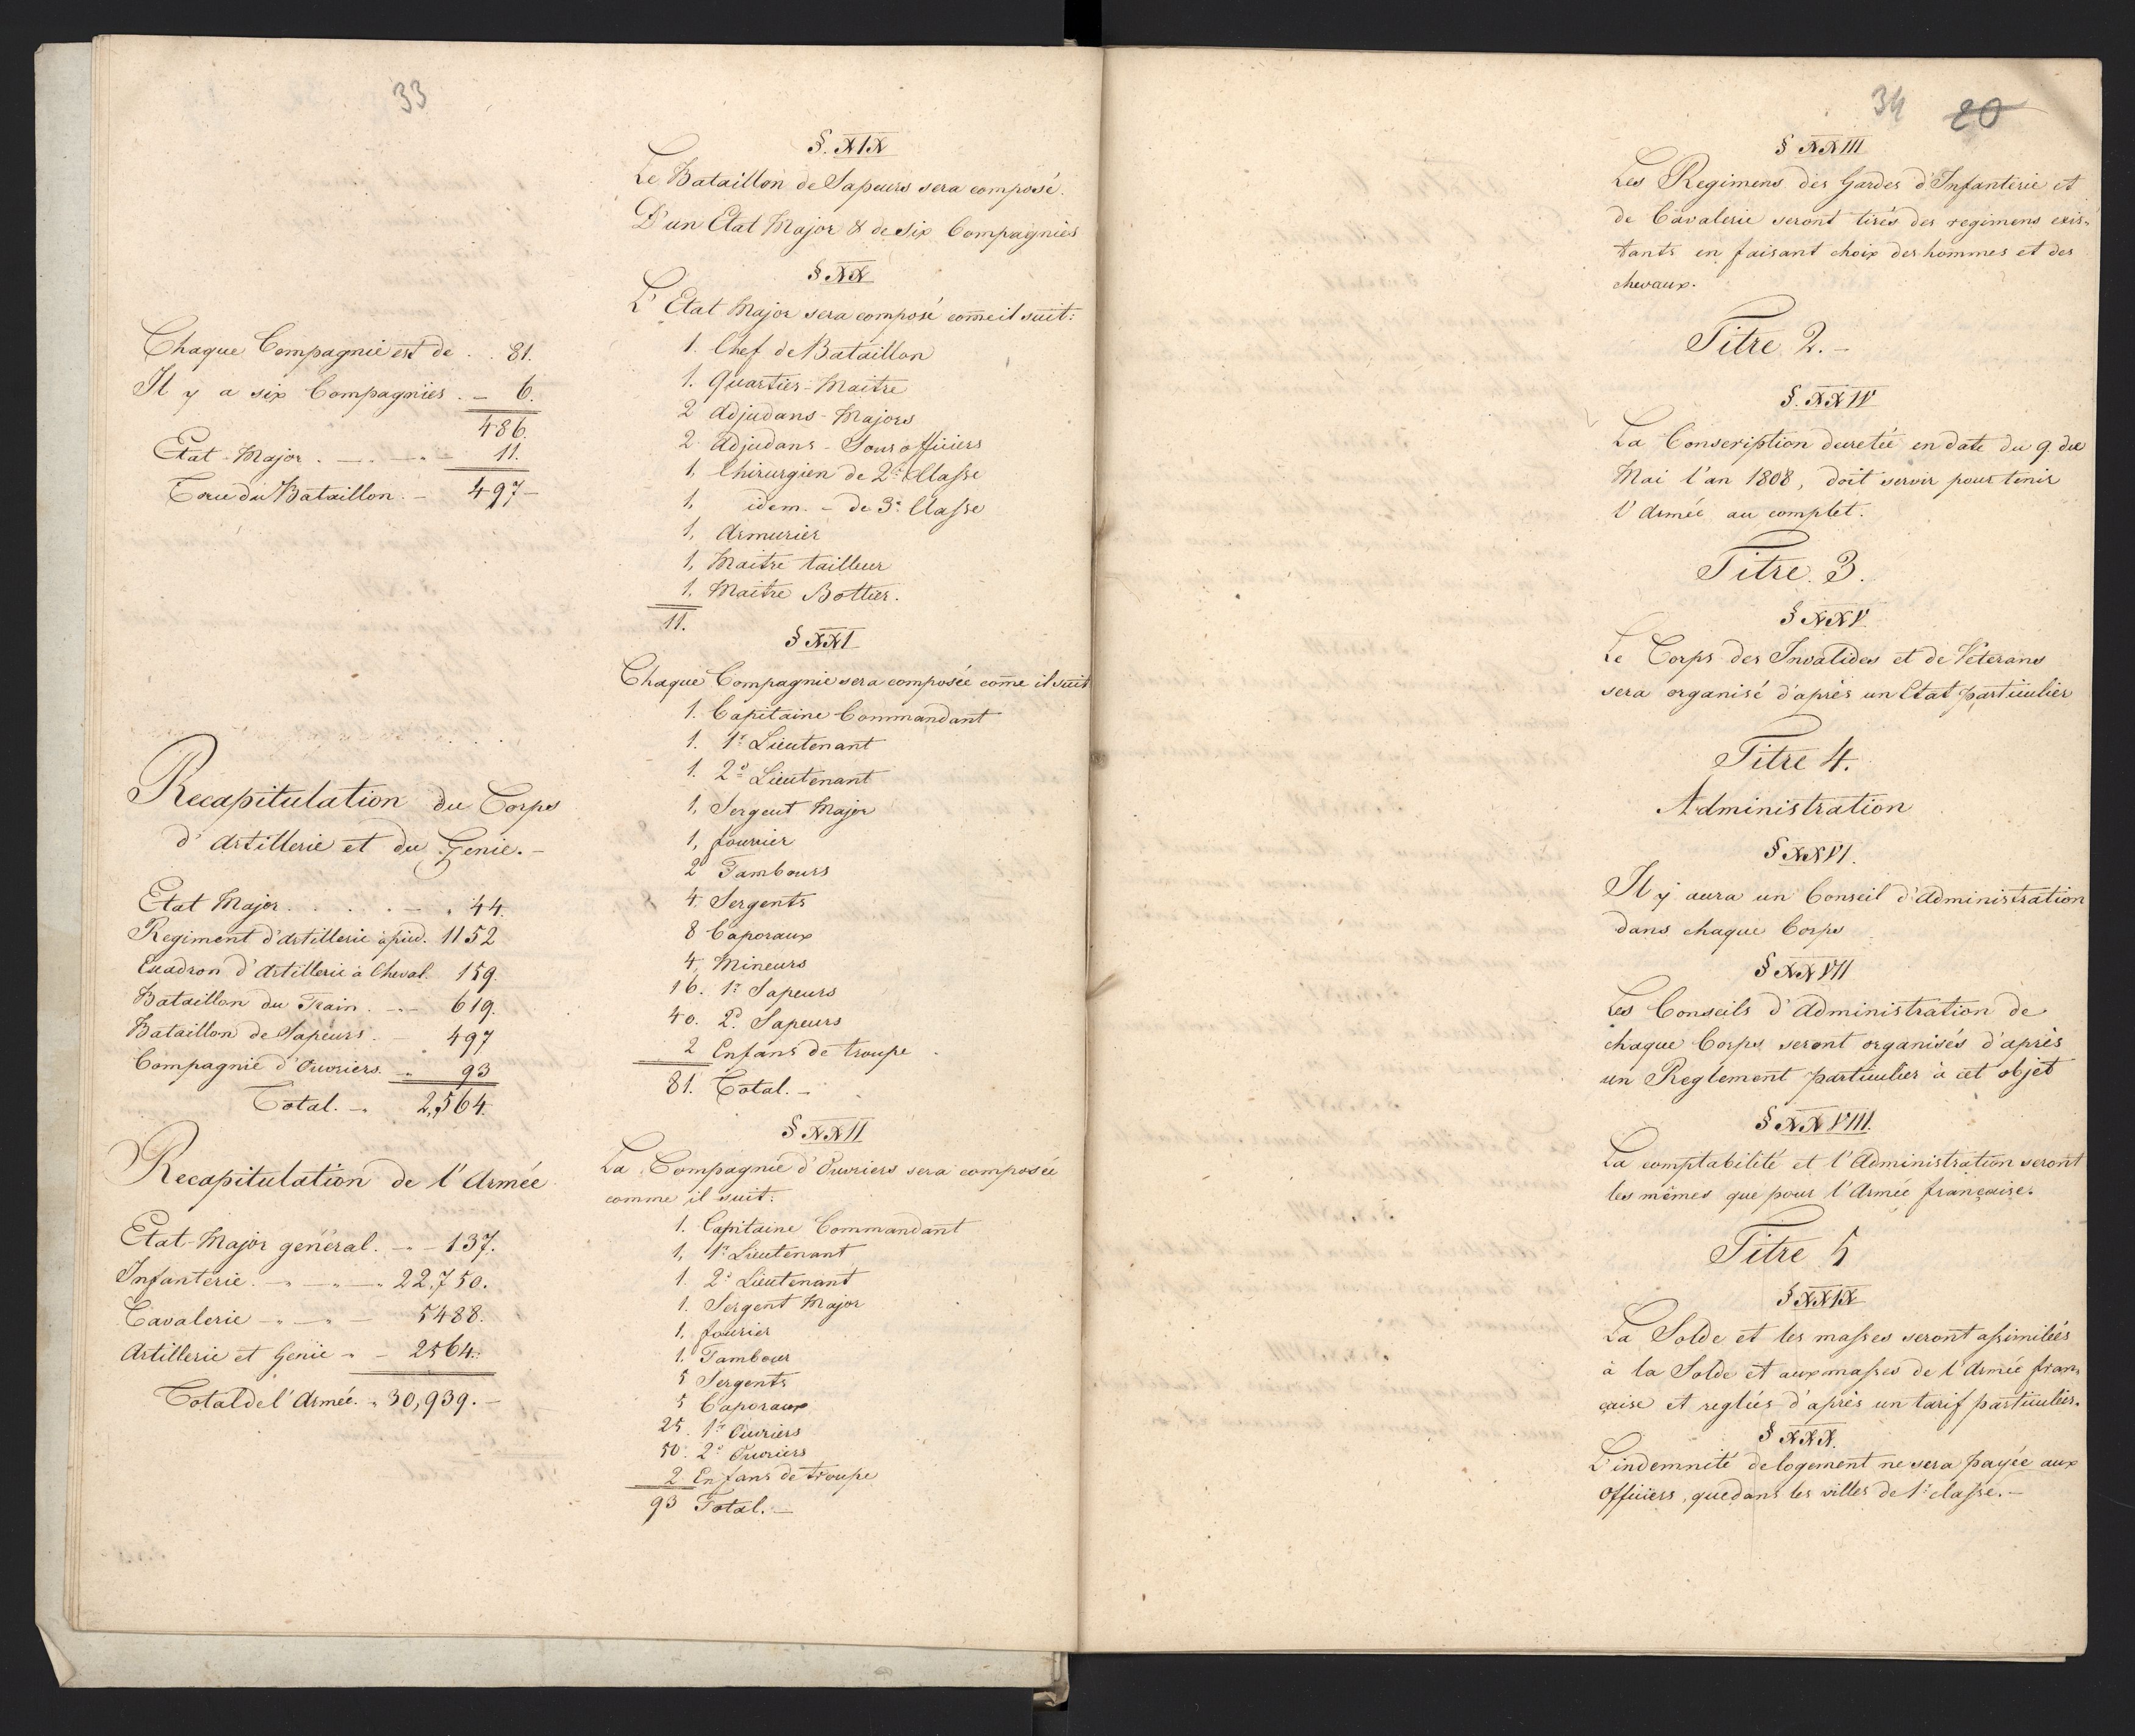 33
Chaque Compagnie est de . . 81.
Il y a six Compagnies . – 6.
486.
Etat-Major . – . – . – 11.
497 –
§. XIX
Le Bataillon de Sapeurs sera composé.
D'un Etat Major & de six Compagnies
§ XX
L'Etat Major sera composé com̄e il suit:
1. Chef de Bataillon
1. Quartier-Maitre
2 Adjudans-Majors
2 Adjudans-Sousofficiers
1, Chirurgien de 2e Classe
1, idem. – de 3e Classe
1, Armurier
1, Maitre tailleur
1, Maitre Bottier.
11.
§ XXI
Chaque Compagnie sera composée com̄e il suit
1. Capitaine Commandant
1. 1r Lieutenant
1. 2d Lieutenant
1, Sergent Major
1, fourrier
2 Tambours
4 Sergents
8 Caporaux
4, Mineurs
16. 1r Sapeurs
40. 2d Sapeurs
2 Enfans de troupe
81. Total. –
§ XXII
La Compagnie d'Ouvriers sera composée
comme il suit:
1. Capitaine Commandant
1, 1r Lieutenant
1. 2d Lieutenant
1. Sergent Major
1, fourier
1. Tambour
5 Sergents
5 Caporaux
25. 1r Ouvriers
50. 2d Ouvriers
2 Enfans de troupe
93 Total. –
Recapitulation du Corps
d'Artillerie et du Genie. –
Etat Major . . . . – . 44.
Regiment d'Artillerie à pied. 1152
Escadron d'Artillerie à Cheval. 159.
Bataillon du Train. – . – 619.
Bataillon de Sapeurs. – 497
Compagnie d'Ouvriers. – . 93
Total. – . 2,564.
Recapitulation de l'Armée
Etat-Major général. – . – 137.
Infanterie. – . – . – . 22,750.
Cavalerie – . – . – 5488.
Artillerie et Genie – . – 2564.
Total de l'Armée. . 30,939. –
34 20
§ XXIII
Les Regimens des Gardes d'Infanterie et
de Cavalerie seront tirés des regimens exis-
tants en faisant choix des hommes et des
chevaux.
Titre 2. –
§. XXIV
La Conscription decretée en date du 9. de
Mai l'an 1808, doit servir pour tenir
l'Armée au complet.
Titre. 3.
§ XXV
Le Corps des Invalides et de Veterans
sera organisé d'après un Etat particulier
Titre 4.
Administration
§ XXVI.
Il y aura un Conseil d'Administration
dans chaque Corps
§ XXVII
Les Conseils d'Administration de
chaque Corps seront organisés d'après
un Reglement particulier à cet objet
§ XXVIII.
La comptabilité et l'Administration seront
les mêmes que pour l'Armée française.
Titre 5
§ XXIX
La Solde et les masses seront assimilées
à la Solde et aux masses de l'Armée fran-
çaise et reglées d'après un tarif particulier.
§ XXX.
L'indemnité de logement ne sera payée aux
Officiers, que dans les villes de 1e classe. –